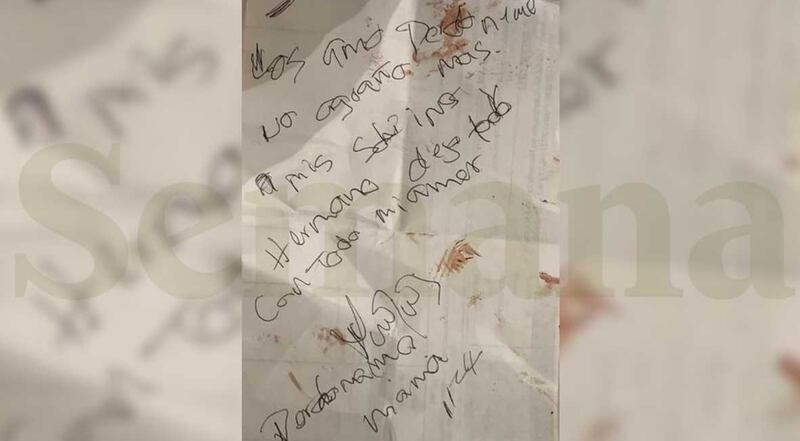 Los amo Perdonenme
no aguanto mas.
A mis sobrinos
Hermano dejo todo
con Todo mi amor
Perdoname
mama
11-4
Semana